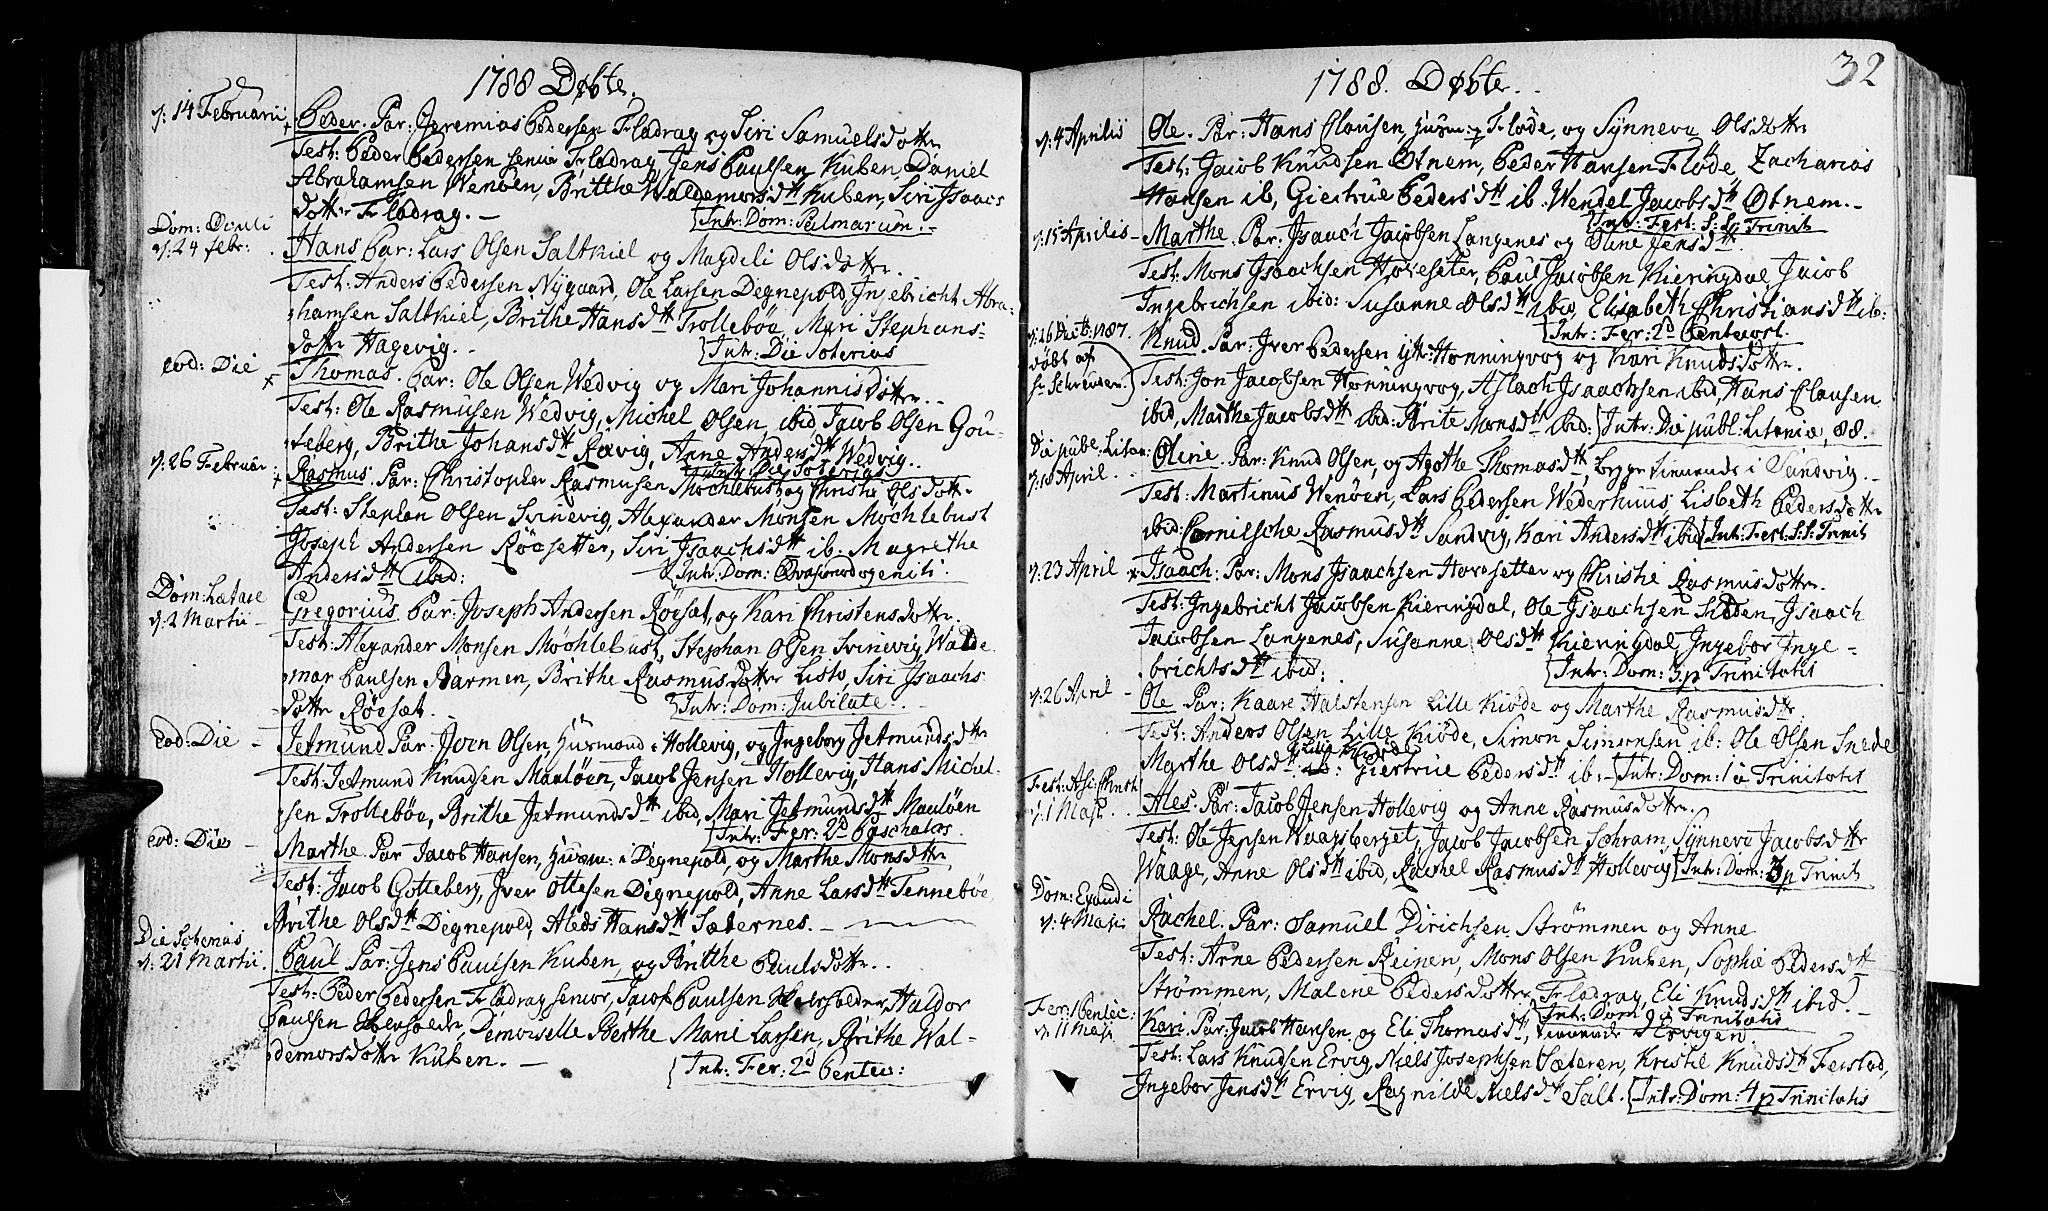 1788 Døbte.
d: 14 Februarii
Peder. Par: Jeremias Pedersen Fladrag og Siri Samuelsdottr
Test: Peder Pedersen senior Fladrag, Jens Paulsen Kuben, Daniel
Abrahamsen Wenöen, Britthe Waldemorsdtt Kuben, Siri Isaacs
dottr Fladrag. –
Intr: Dom: Palmarum.–
Dom: Oculi
d: 24 febr:
Hans Par: Lars Olsen Saltkiel og Magdeli Olsdottr.
Test: Anders Pedersen Nygaard, Ole Larsen Degnepold, Ingebricht Abra-
hamsen Saltkiel, Brithe Hansdtt Trolleböe, Mari Stephans-
dottr Hagevig. –
Intr: Die Soterias
eod: Die
Thomas. Par: Ole Olsen Wedvig og Mari Johannisdottr. –
Test: Ole Rasmusen Wedvig, Michel Olsen ibid, Jacob Olsen Gou-
teberg, Brithe Johansdtt Rævig, Anne Andersdtt Wedvig.
Intr: Die Soterias
d: 26 Februar:
Rasmus. Par: Christopher Rasmusen Möchlebust og Christie Olsdottr
Test: Stephan Olsen Svinevig, Alexander Monsen Möchlebust
Joseph Andersen Röesetter, Siri Isaachsdtt ib. Magrethe
Andersdtt ibid:
Intr: Dom: Qvasimodogeniti.
Dom: Lætare
d: 2 Martii –
Gregorius Par: Joseph Andersen Röesæt, og Kari Christensdottr.
Test: Alexander Monsen Möchlebust, Stephan Olsen Svinevig, Walde
mar Paulsen Barmen, Brithe Rasmusdottr Listo, Siri Isaachs
dottr Röesæt. –
Intr: Dom: Jubilate.
eod: Die –
Jetmund Par: Joen Olsen Husmand i Hollevig, og Ingeborg Jetmundsdtt
Test: Jetmund Knudsen Maulöen, Jacob Jensen Hollevig, Hans Michel-
sen Trolleböe, Brithe Jetmundsdtt ibid, Mari Jetmundsdtt Maulöen
Intr: Fer: 2d Paschatos.
eod: Die –
Marthe. Par Jacob Hansen, Husm: i Degnepold, og Marthe Monsdottr
Test: Jacob Gotteberg, Iver Ottesen Degnepold, Anne Larsdtt Tenneböe
Brithe Olsdtt Degnepold, Aleds Hansdtt Sæternes. –
Die Soterias
d: 21 Martii.
Paul Par: Jens Paulsen Kuben, og Britthe Paulsdottr.
Test: Peder Pedersen Fladrag senior, Jacob Paulsen, Haldor
Paulsen, Demoiselle Berthe Marie Larsen, Brithe Wal-
demorsdottr Kuben. –
Intr: Fer: 2d Pentec:
32
1788. Døbte. –
d: 4 Aprilis
Ole. Par: Hans Clausen, Husm: p Flöde, og Synneva Olsdottr
Test: Jacob Knudsen Otnem, Peder Hansen Flöde, Zacharias
Hansen ib, Giertrue Pedersdtt ib. Wendel Jacobsdtt Otnem. –
Intr: Fest: S: S: Trinit
d: 15 Aprilis –
Marthe. Par: Isaach Jacobsen Langenes og Oline Jensdtt.
Test: Mons Isaachsen Hovesetter, Paul Jacobsen Kieringdal, Jacob
Ingebrichsen ibid: Susanne Olsdtt ibid, Elisabeth Christiansdtt ib:
Intr: Fer: 2d Pentecost.
d: 26 Decb: 1787.
döbt af
Hr Schreuder.)
Knud. Par: Iver Pedersen yttr: Honningvog og Kari Knudsdottr.
Test: Jon Jacobsen Honningvog, Aslach Isaachsen ibid, Hans Clausen
ibid, Marthe Jacobsdtt ibid: Brite Monsdtt ibid: Intr: Die publ: Litaniæ, 88.
Die publ: Litan:
d: 18 April. .
Oline. Par: Knud Olsen, og Agothe Thomasdtt, begge tienende i Sandvig. –
Test: Martinus Wenöen, Lars Pedersen Wederhuus, Lisbeth Pedersdottr
ibid: Cornilsche Rasmusdtt Sandvig, Kari Andersdtt ibid Intr: Fest: S: S: Trinit
d: 23 April
Isaach. Par: Mons Isaachsen Hovesetter og Christie Rasmusdottr.
Test: Ingebricht Jacobsen Kieringdal, Ole Isaachsen Liden, Isaach
Jacobsen Langenes, Susanne Olsdtt Kieringdal, Ingebor Inge-
brichtsdtt ibid.
Intr: Dom: 3 p Trinitatis
d: 26 April –
Ole Par: Kaare Halstensen Lille Kiöde og Marthe Rasmusdtt.
Test: Anders Olsen Lille Kiöde, Simon Simonsen ib: Ole Olsen Snede
Lille Kiöde
Marthe Olsdtt ib: Giertrue Pedersdtt ib: – Intr: Dom: 1 a Trinitatis
Fest: Asc: Christi
d: 1 Maji. .
Ales. Par: Jacob Jensen Hollevig og Anne Rasmusdottr.
Test: Ole Jensen Waagsberget, Jacob Jacobsen Schram, Synneva Jacobsdtt
Waage, Anne Olsdtt ibid, Rachel Rasmusdtt Hollevig Intr: Dom: 3 p Trinit
Dom: Exaudi
d: 4 Maji
Rachel. Par: Samuel Dirichsen Strömmen og Anne
Test: Arne Pedersen Reinen, Mons Olsen Kuben, Sophie Pedersdtt
Strömmen, Malene Pedersdottr Fladrag, Eli Knudsdtt ibid. –
Intr: Dom: p Trinitatis
Fer: 1 Pentec:
d: 11 Maji
Kari. Par: Jacob Hansen og Eli Thomasdtt, tienende i Ervigen.
Test: Lars Knudsen Ervig, Niels Josephsen Sæteren, Kristie Knudsdtt Ferstad,
Ingebor Jensdtt Ervig, Ragnilde Nielsdtt Salt. Intr: Dom: 4 p Trinitatis